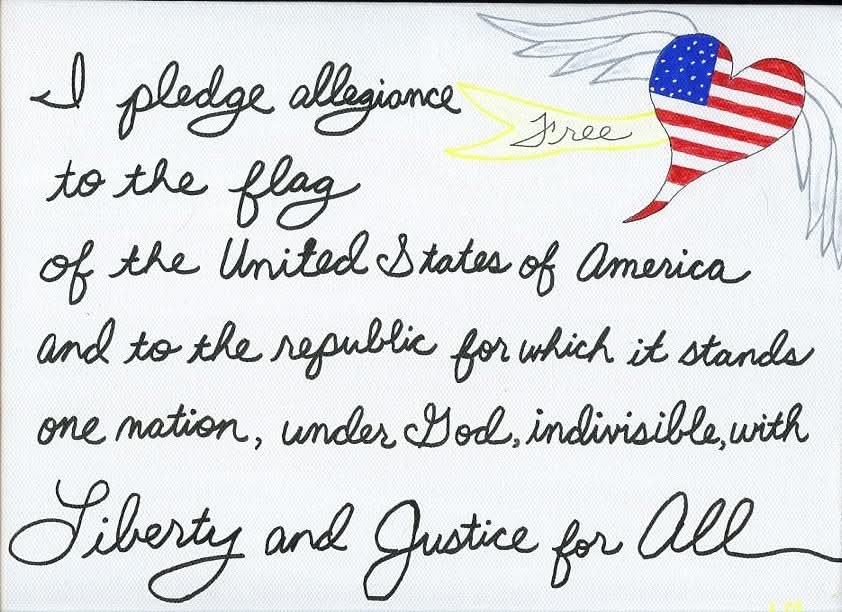 I pledge allegiance
Free
to the flag
of the United States of America
and to the republic for which it stands
one nation, under God, indivisible, with
Liberty and Justice for All